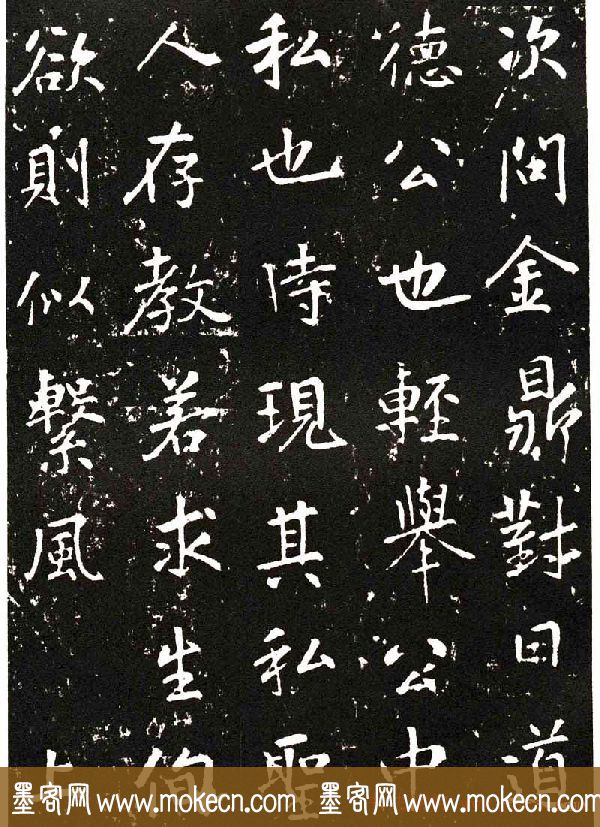 次問金鼎對曰道
德公也輕舉公中
私也時現其私聖
人存教若求生徇
欲則似繫風
墨客网 www.mokecn.com 墨客网 www.mokecn.com